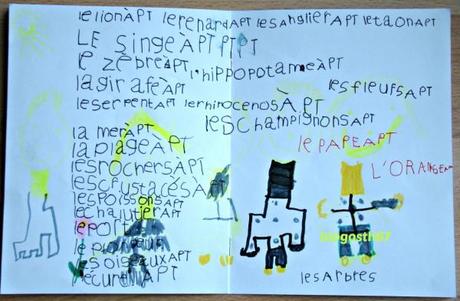 le lion APT le renard APT le sanglier APT le taon APT
LE singe APT PT PT
le zèbre APT l'hippopotame APT
la girafe APT les fleurs APT
le serpent APT le rhinocéros APT
les champignons APT
la mer APT
la plage APT le PAPE APT
les rochers APT L'ORANGE APT
les crustacés APT
les poissons APT
le chalutier APT
le port
les oiseaux APT
l'écureuil APT
les Arbres